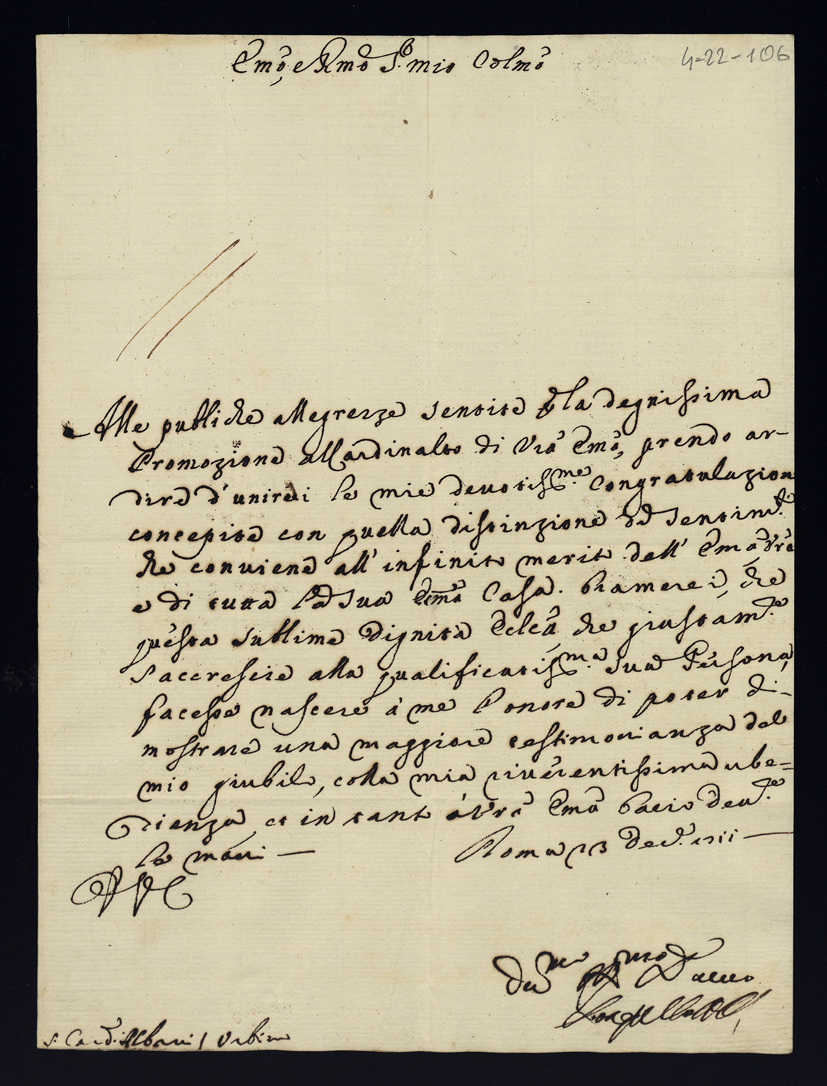 Emo, e Rmo Sr. mio Colmo
4-22-106
Alle publiche allegrezze sentite p la degnissima
Promozione al Cardinalto di Vra Emã, prendo ar-
dire d'unirci le mie devotissme congratulazioni
concepite con quella distinzione de sentimti
che conviene all' infinito merito dell' Emã Vra
e di tutta la sua Emã Casa. Bramerei, che
questa sublime Dignità che giustamte
s'accresce alla qualificatissma sua Persona,
facesse nascere à me l'onore di poter di-
mostrare una maggiore testimonianza del
mio giubilo, colla mia riverentissima ube-
dienza et in tanto à Vra Emã bacio devte
le mani —
Roma 23 Dece. 1711 —
Devmo
S. Card. Albani / Urbino